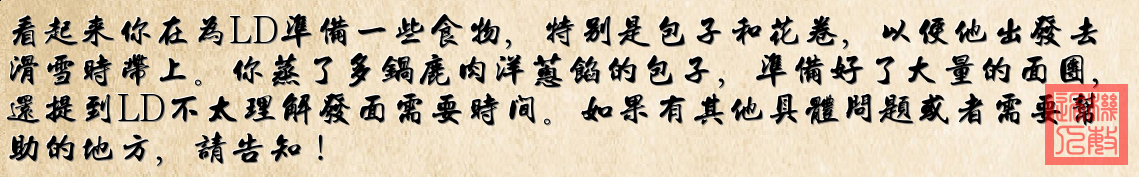 看起来你在為LD準備一些食物，特别是包子和花卷，以便他出發去
滑雪時帶上。你蒸了多鍋鹿肉洋蔥餡的包子，準備好了大量的面團，
還提到LD不太理解發面需要時间。如果有其他具體問題或者需要幫
助的地方，請告知！